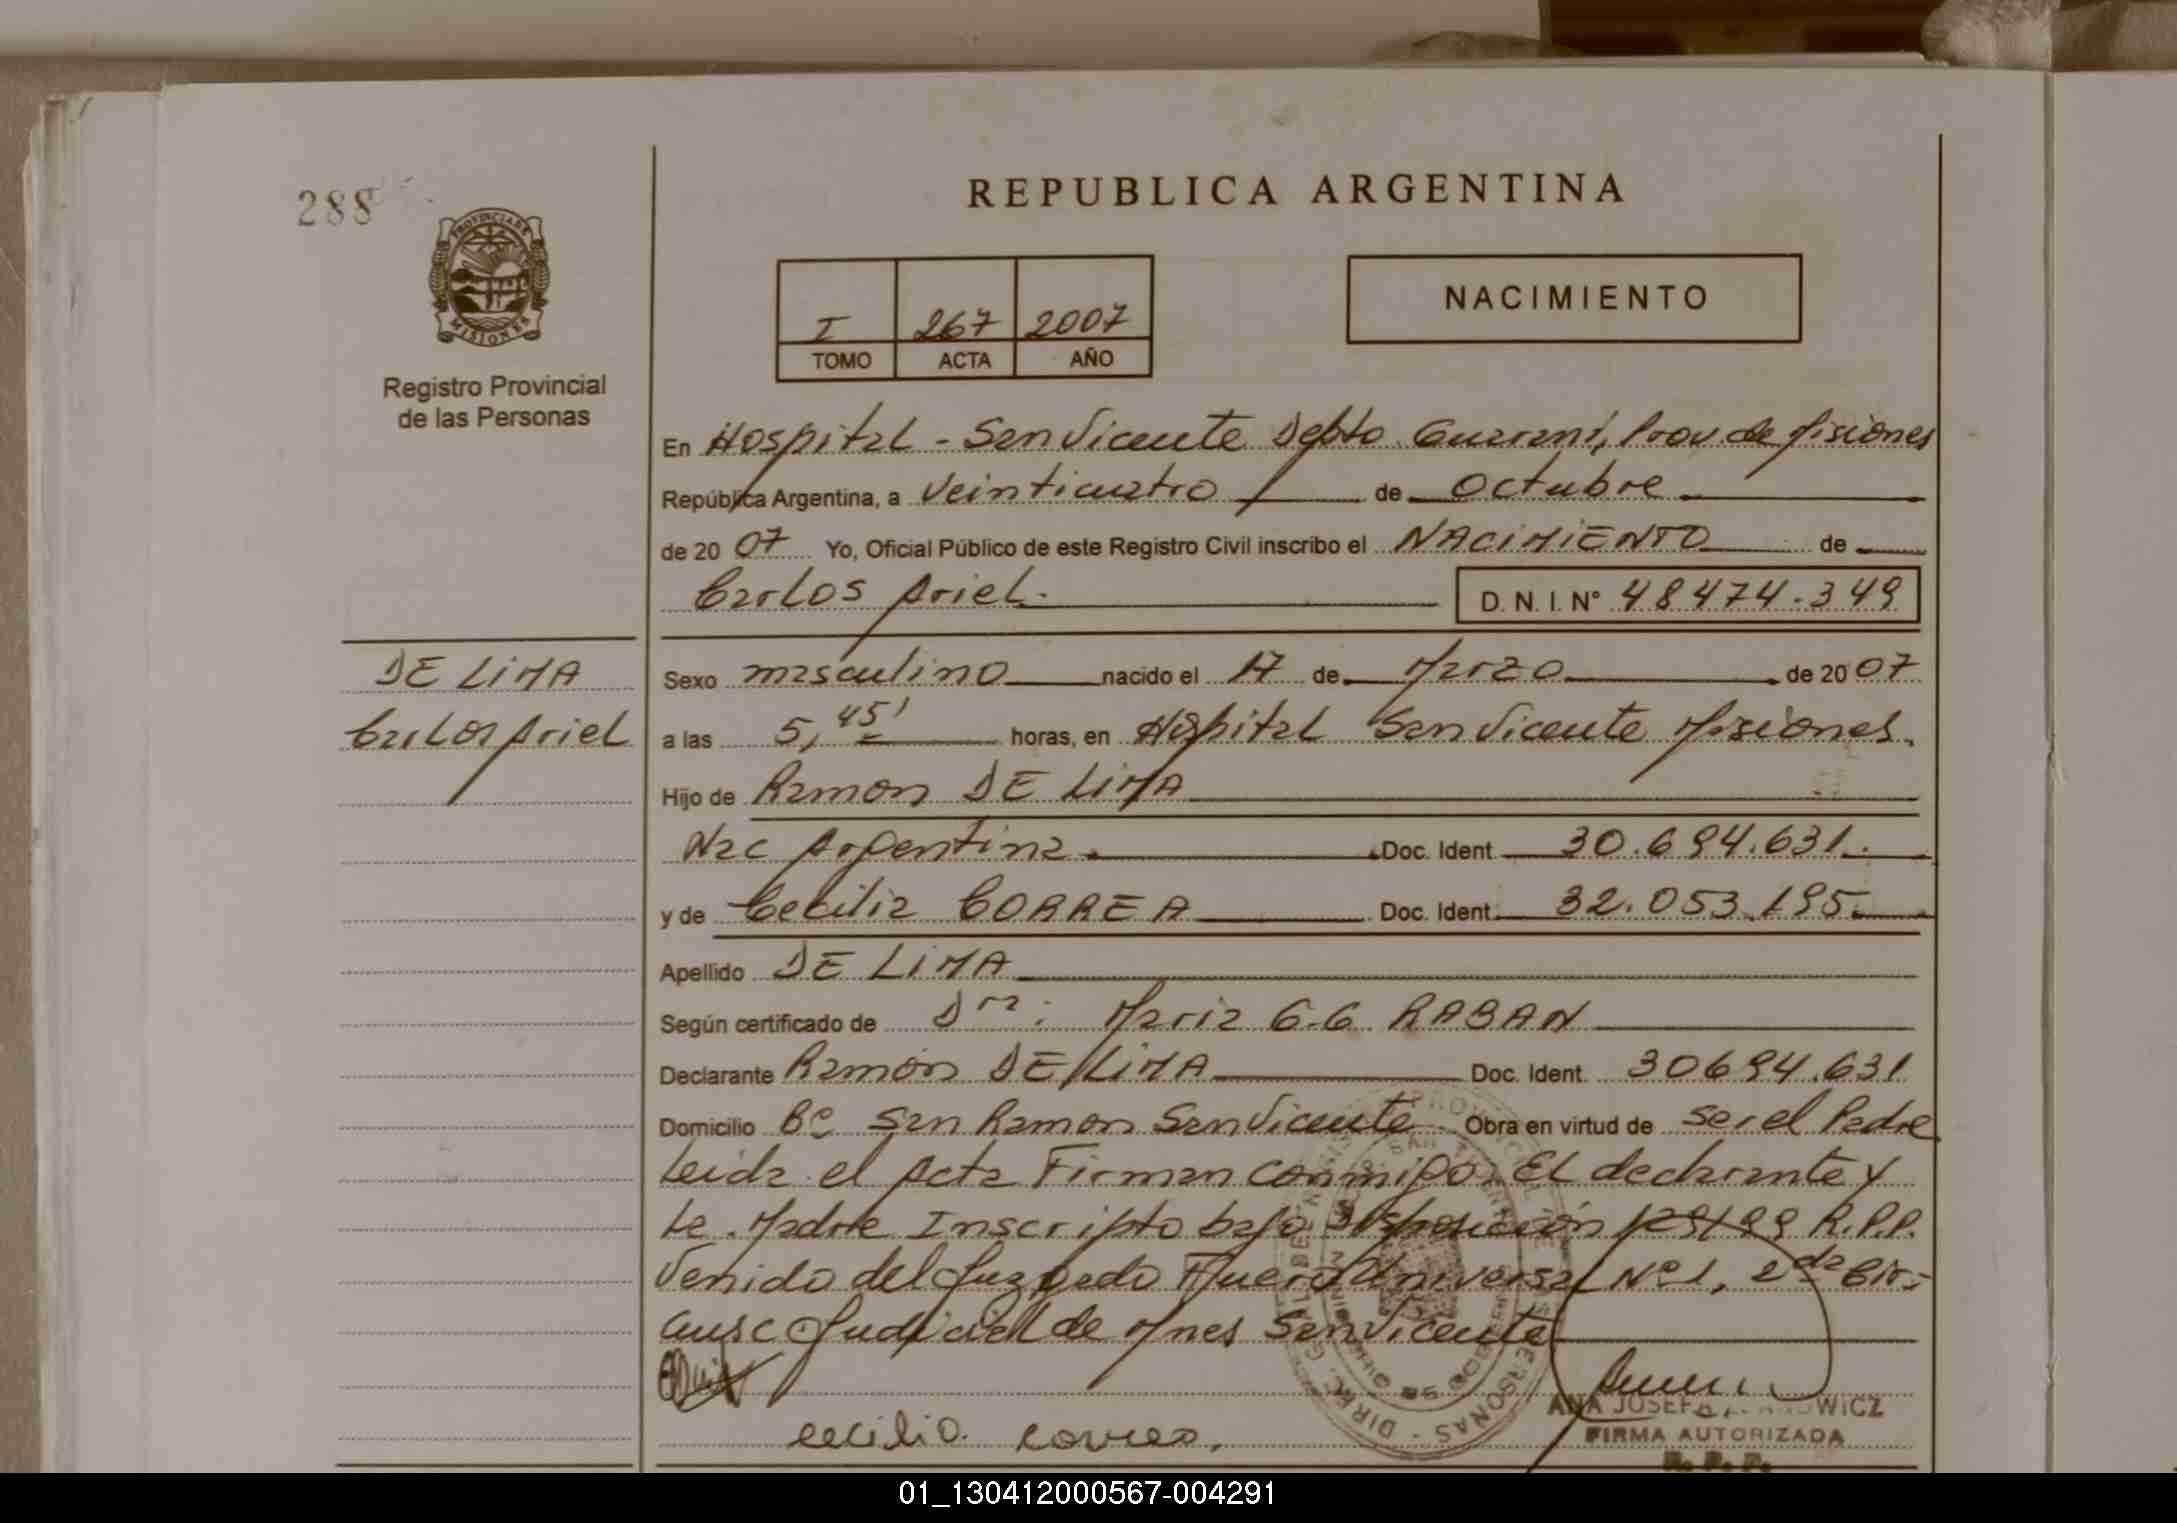 288
REPUBLICA ARGENTINA
PROVINCIA DE
MISIONES
Registro Provincial
de las Personas
I 267 2007
TOMO ACTA AÑO
NACIMIENTO
En Hospital - San Vicente Depto Guarani, Prov de Misiones
República Argentina, a Veinticuatro de Octubre
de 20 07 Yo, Oficial Público de este Registro Civil inscribo el NACIMIENTO de
Carlos Ariel. D. N. I. N° 48474.349
DE LIMA
Carlos Ariel
Sexo masculino nacido el 17 de Marzo de 20 07
a las 5,45' horas, en Hospital San Vicente Misiones.
Hijo de Ramon DE LIMA
Nac Argentina Doc. Ident. 30.694.631.
y de Cecilia CORREA Doc. Ident. 32.053.195
Apellido DE LIMA
Según certificado de Dra: Maria G.G RABAN
Declarante Ramón DE LIMA Doc. Ident. 30694.631
Domicilio Bº San Ramon San Vicente Obra en virtud de ser el Padre
Leida el Acta Firman conmigo El declarante y
la Madre Inscripto bajo Disposición 129/99 R.P.P.
Venido del Juzgado Fuero Universal Nº1, 2da Cir-
cunsc Judicial de Mnes San Vicente
cecilia correa.
ANA JOSEFA WICZ
FIRMA AUTORIZADA
R. P. P.
01_130412000567-004291